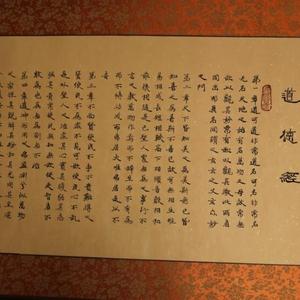 道德經
第一章道可道非常道名可名非常名
无名天地之始有名萬物之母故常無
欲以觀其妙常有欲以觀其徼此兩者
同出而異名同謂之玄玄之又玄衆妙
之門
第二章天下皆知美之為美斯惡已皆
知善之為善斯不善已故有無相生難
易相成長短相形高下相傾音聲相和
前後相隨是以聖人處無為之事行不
言之教萬物作焉而不辭生而不有為
而不恃功成而弗居夫唯弗居是以不
去
第三章不尚賢使民不爭不貴難得之
貨使民不為盜不見可欲使民心不亂
是以聖人之治虛其心實其腹弱其志
強其骨常使民無知無欲使夫智者不
敢為也為無為則無不治
第四章道沖而用之或不盈淵兮似萬物
之宗挫其銳解其紛和其光同其塵湛